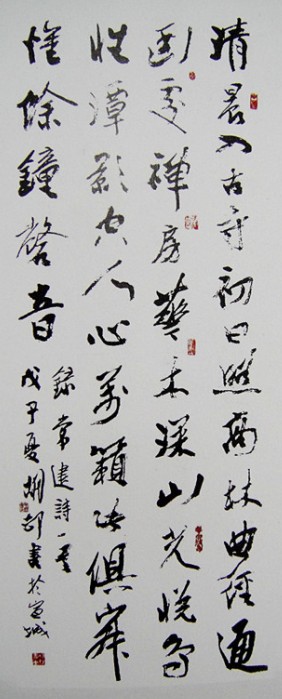 清晨入古寺初日照高林曲徑通
幽處禪房華木深山光悅鳥
性潭影空人心萬籟此俱寂
惟餘鐘磬音
錄常建詩一首
戊子夏書於宣城